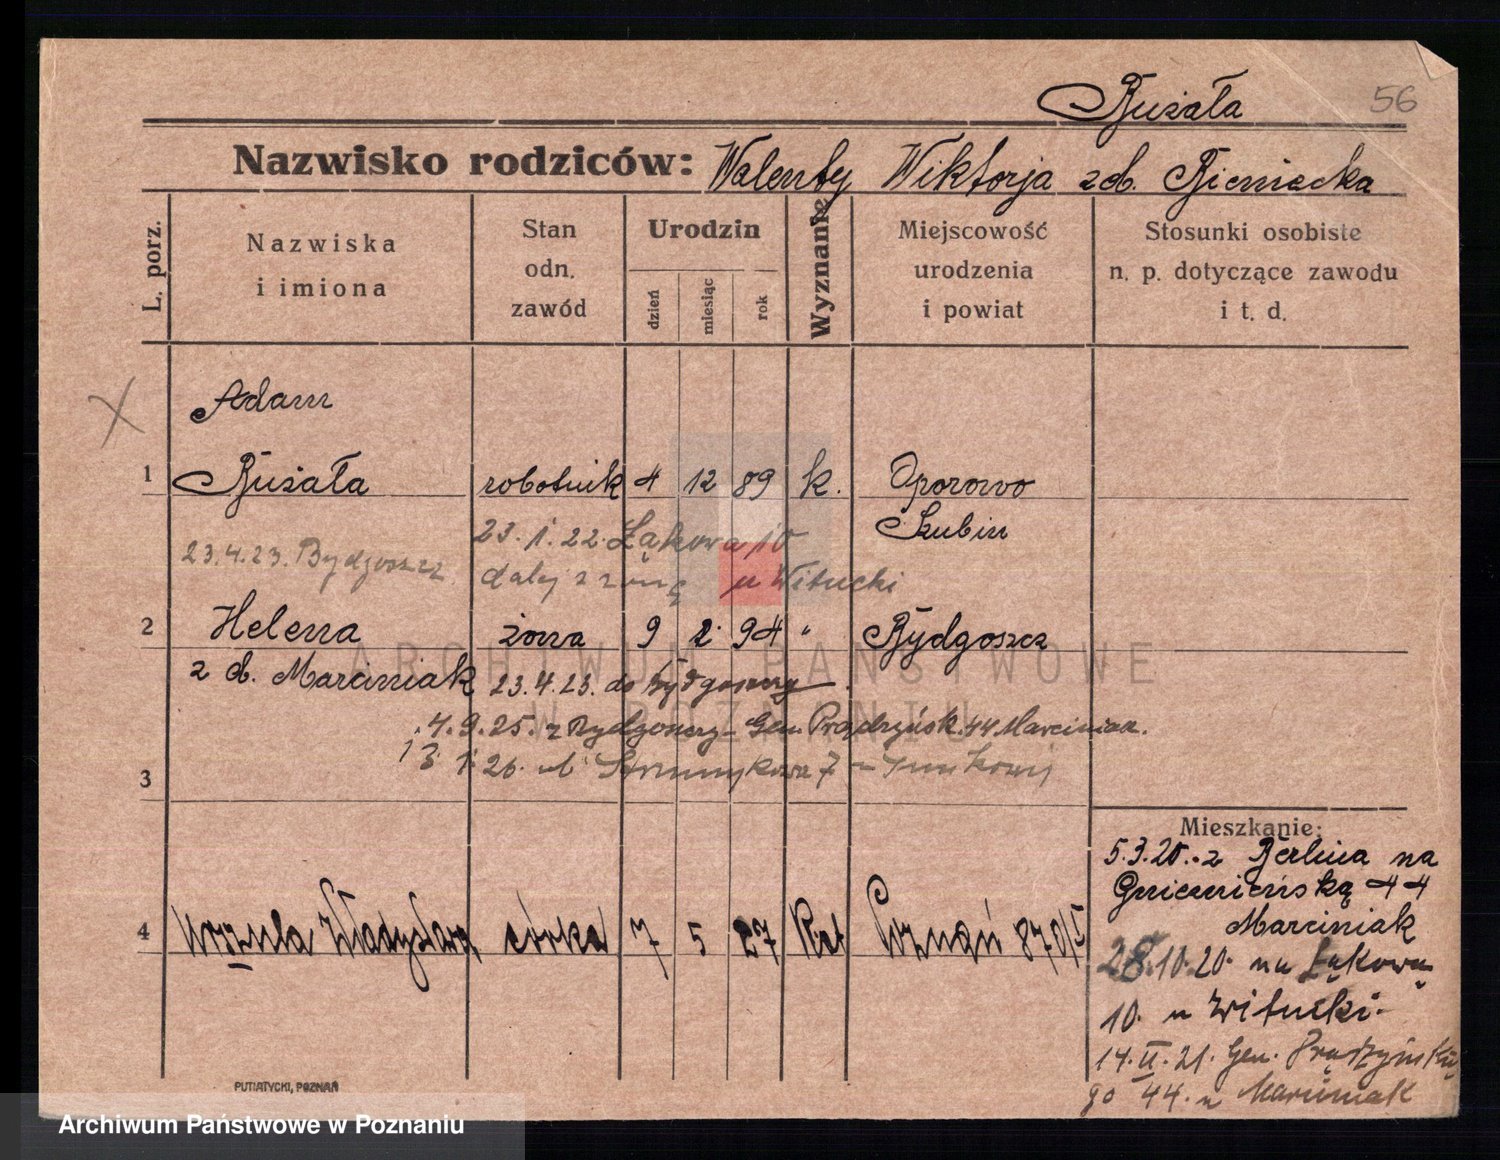 Bużała 56
Nazwisko rodziców: Walenty Wiktorja zd. Bieniecka
L. porz.
Nazwiska i imiona
Stan odn. zawód
Urodzin
dzień miesiąc rok
Wyznanie
Miejscowość urodzenia i powiat
Stosunki osobiste n. p. dotyczące zawodu i t. d.
Adam
1 Bużała robotnik 4 12 89 k. Oporowo
Szubin
23.1.22. Łąkowa 10
23.4.23. Bydgoszcz
dalej z żoną u Witucki
2 Helena żona 9 2 94 " Bydgoszcz
z d. Marciniak 23.4.23. do Bydgoszczy
4.9.25. z Bydgoszczy - Gen. Prądzyńsk. 44 Marciniak.
13 1 26. Strumykowa 7
3
4 Urszula Władysława córka 7 5 27 Kat Poznań 870/I
Mieszkanie:
5.3.20. z Berlina na
Gnieźnieńską 44
Marciniak
28.10.20. na Łąkową
10. u Witucki.
14.II.21. Gen. Prądzyńskie
go 44. u Marciniak
PUTIATYCKI, POZNAŃ
ARCHIWUM PAŃSTWOWE
W POZNANIU
Archiwum Państwowe w Poznaniu